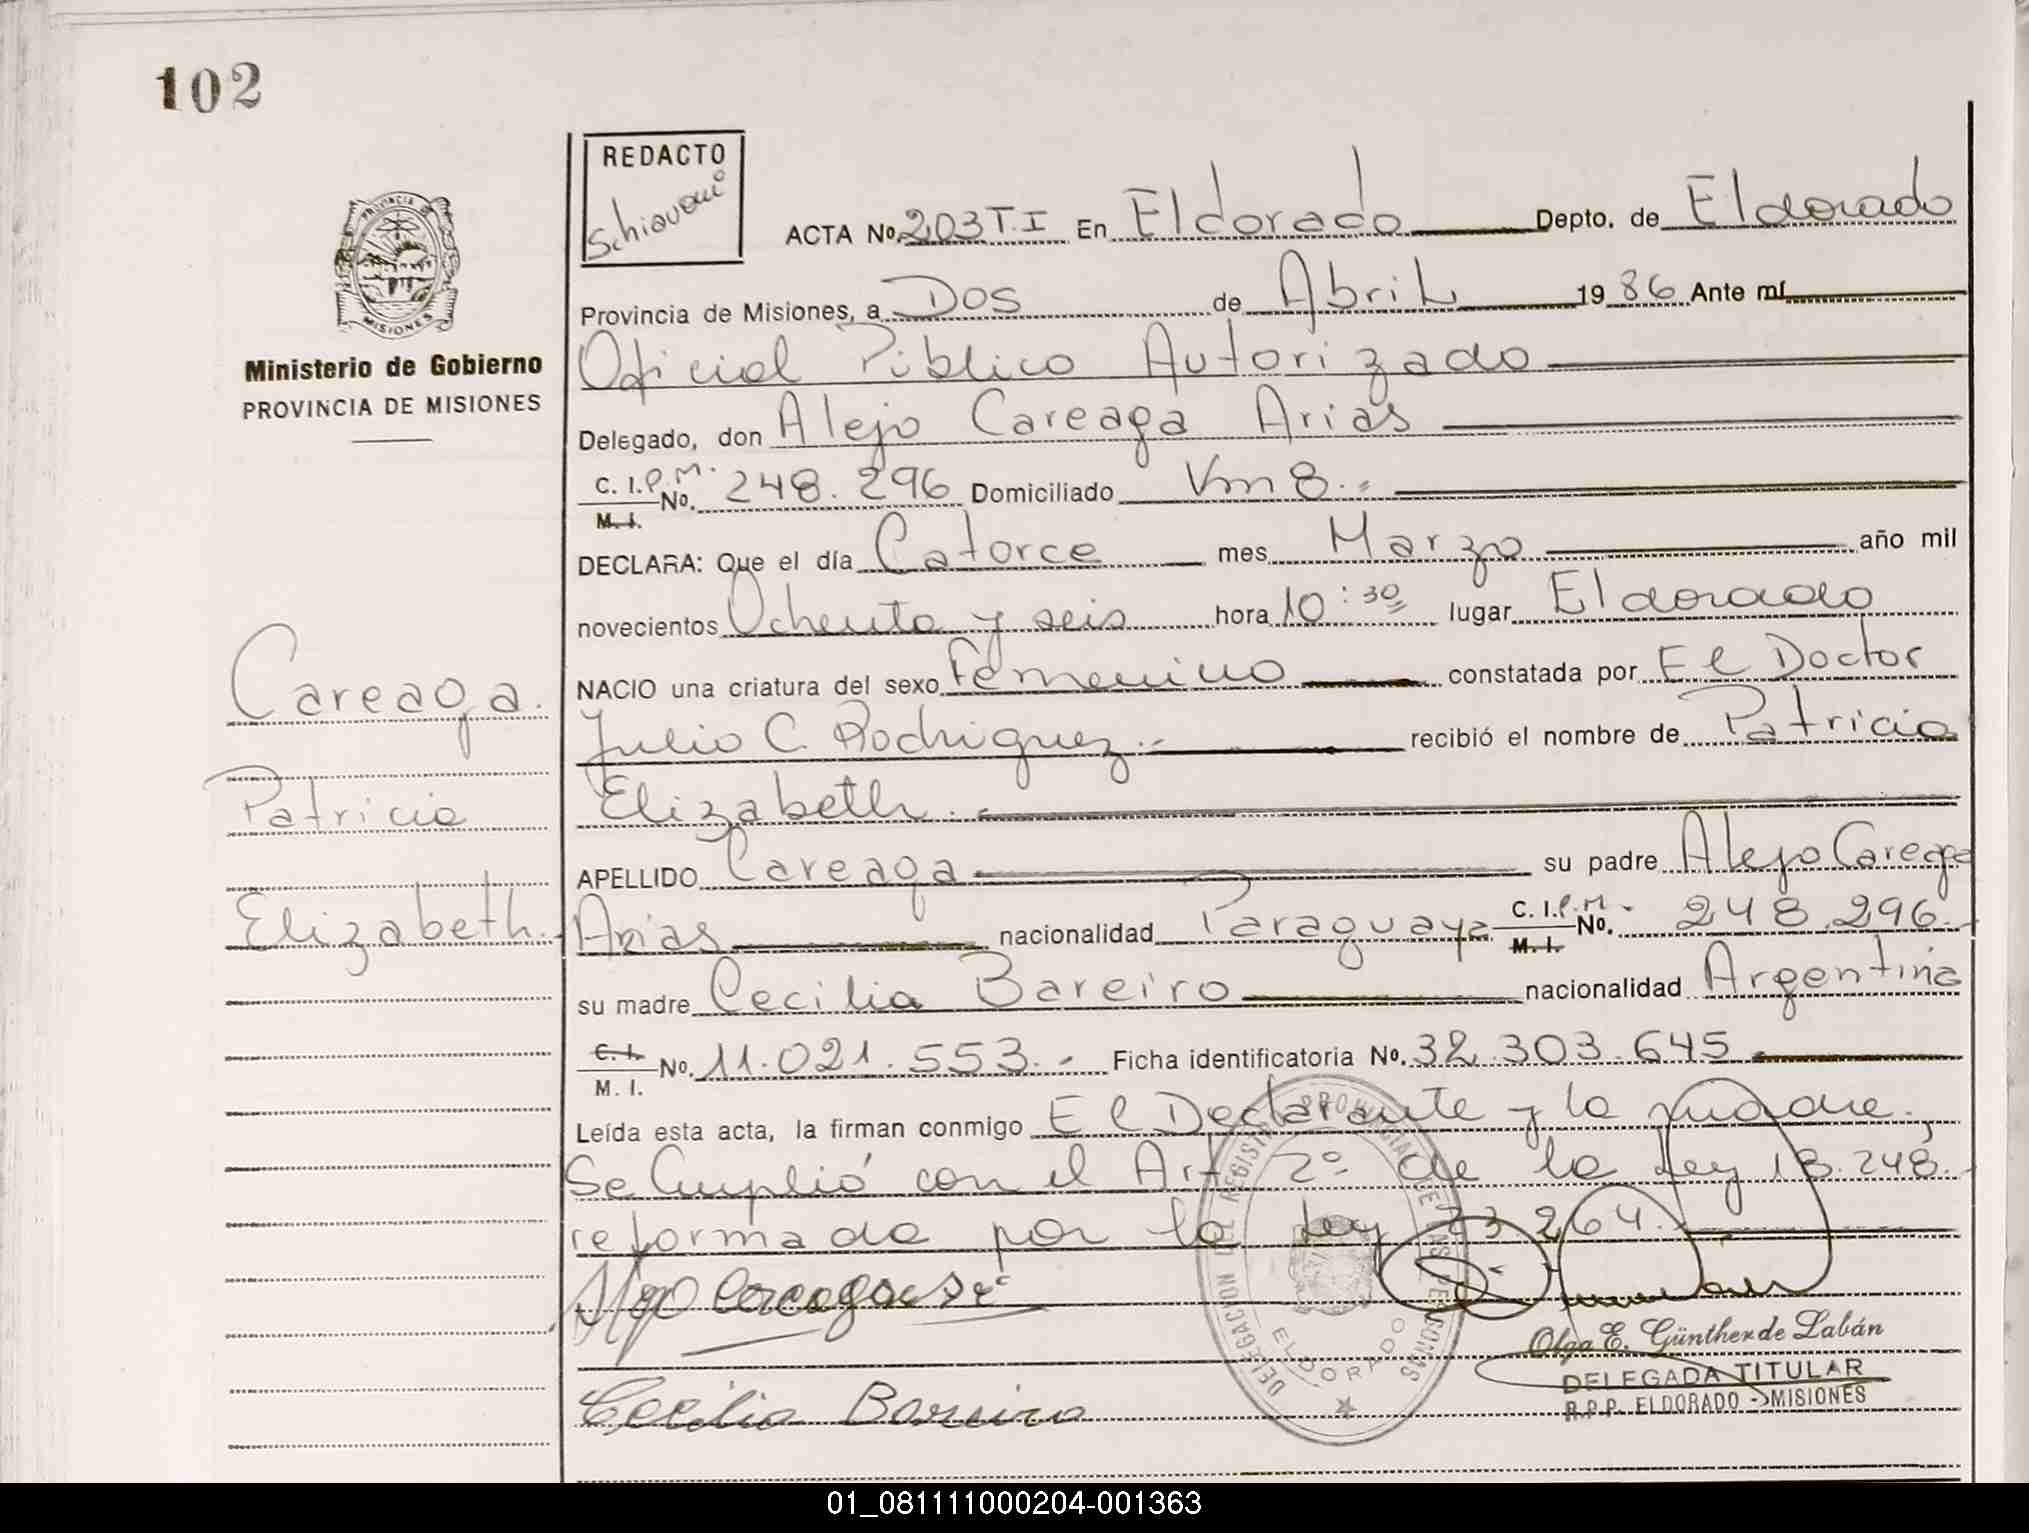 102
REDACTO
Schiavoni
ACTA No. 203 T.I En Eldorado Depto. de Eldorado
PROVINCIA DE
MISIONES
Ministerio de Gobierno
PROVINCIA DE MISIONES
Provincia de Misiones, a Dos de Abril 1986 Ante mí
Oficial Público Autorizado
Delegado, don Alejo Careaga Arias
C. I. P.M. No. 248.296 Domiciliado Km 8.-
M. I.
DECLARA: Que el día Catorce mes Marzo año mil
novecientos Ochenta y seis hora 10:30 lugar Eldorado
NACIO una criatura del sexo Femenino constatada por El Doctor
Julio C. Rodriguez.- recibió el nombre de Patricia
Elizabeth.-
APELLIDO Careaga su padre Alejo Careaga
Arias nacionalidad Paraguaya C. I. P.M. No. 248.296.-
M. I.
su madre Cecilia Bareiro nacionalidad Argentina
C. I.
M. I. No. 11.021.553.- Ficha identificatoria No. 32.303.645
Leída esta acta, la firman conmigo El Declarante y la madre.
Se Cumplió con el Art 2º de la Ley 18.248,
reformada por la Ley 23264.
Careaga.
Patricia
Elizabeth.
Alejo Careaga
Cecilia Bareiro
DELEGACION DEL REGISTRO PROVINCIAL DE LAS PERSONAS
ELDORADO
Olga E. Günther de Labán
DELEGADA TITULAR
R.P.P. ELDORADO - MISIONES
01_081111000204-001363